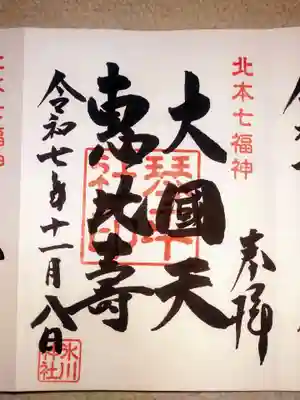 北本七福神
奉拝
大國天
恵比壽
令和七年十一月八日
氷川
神社